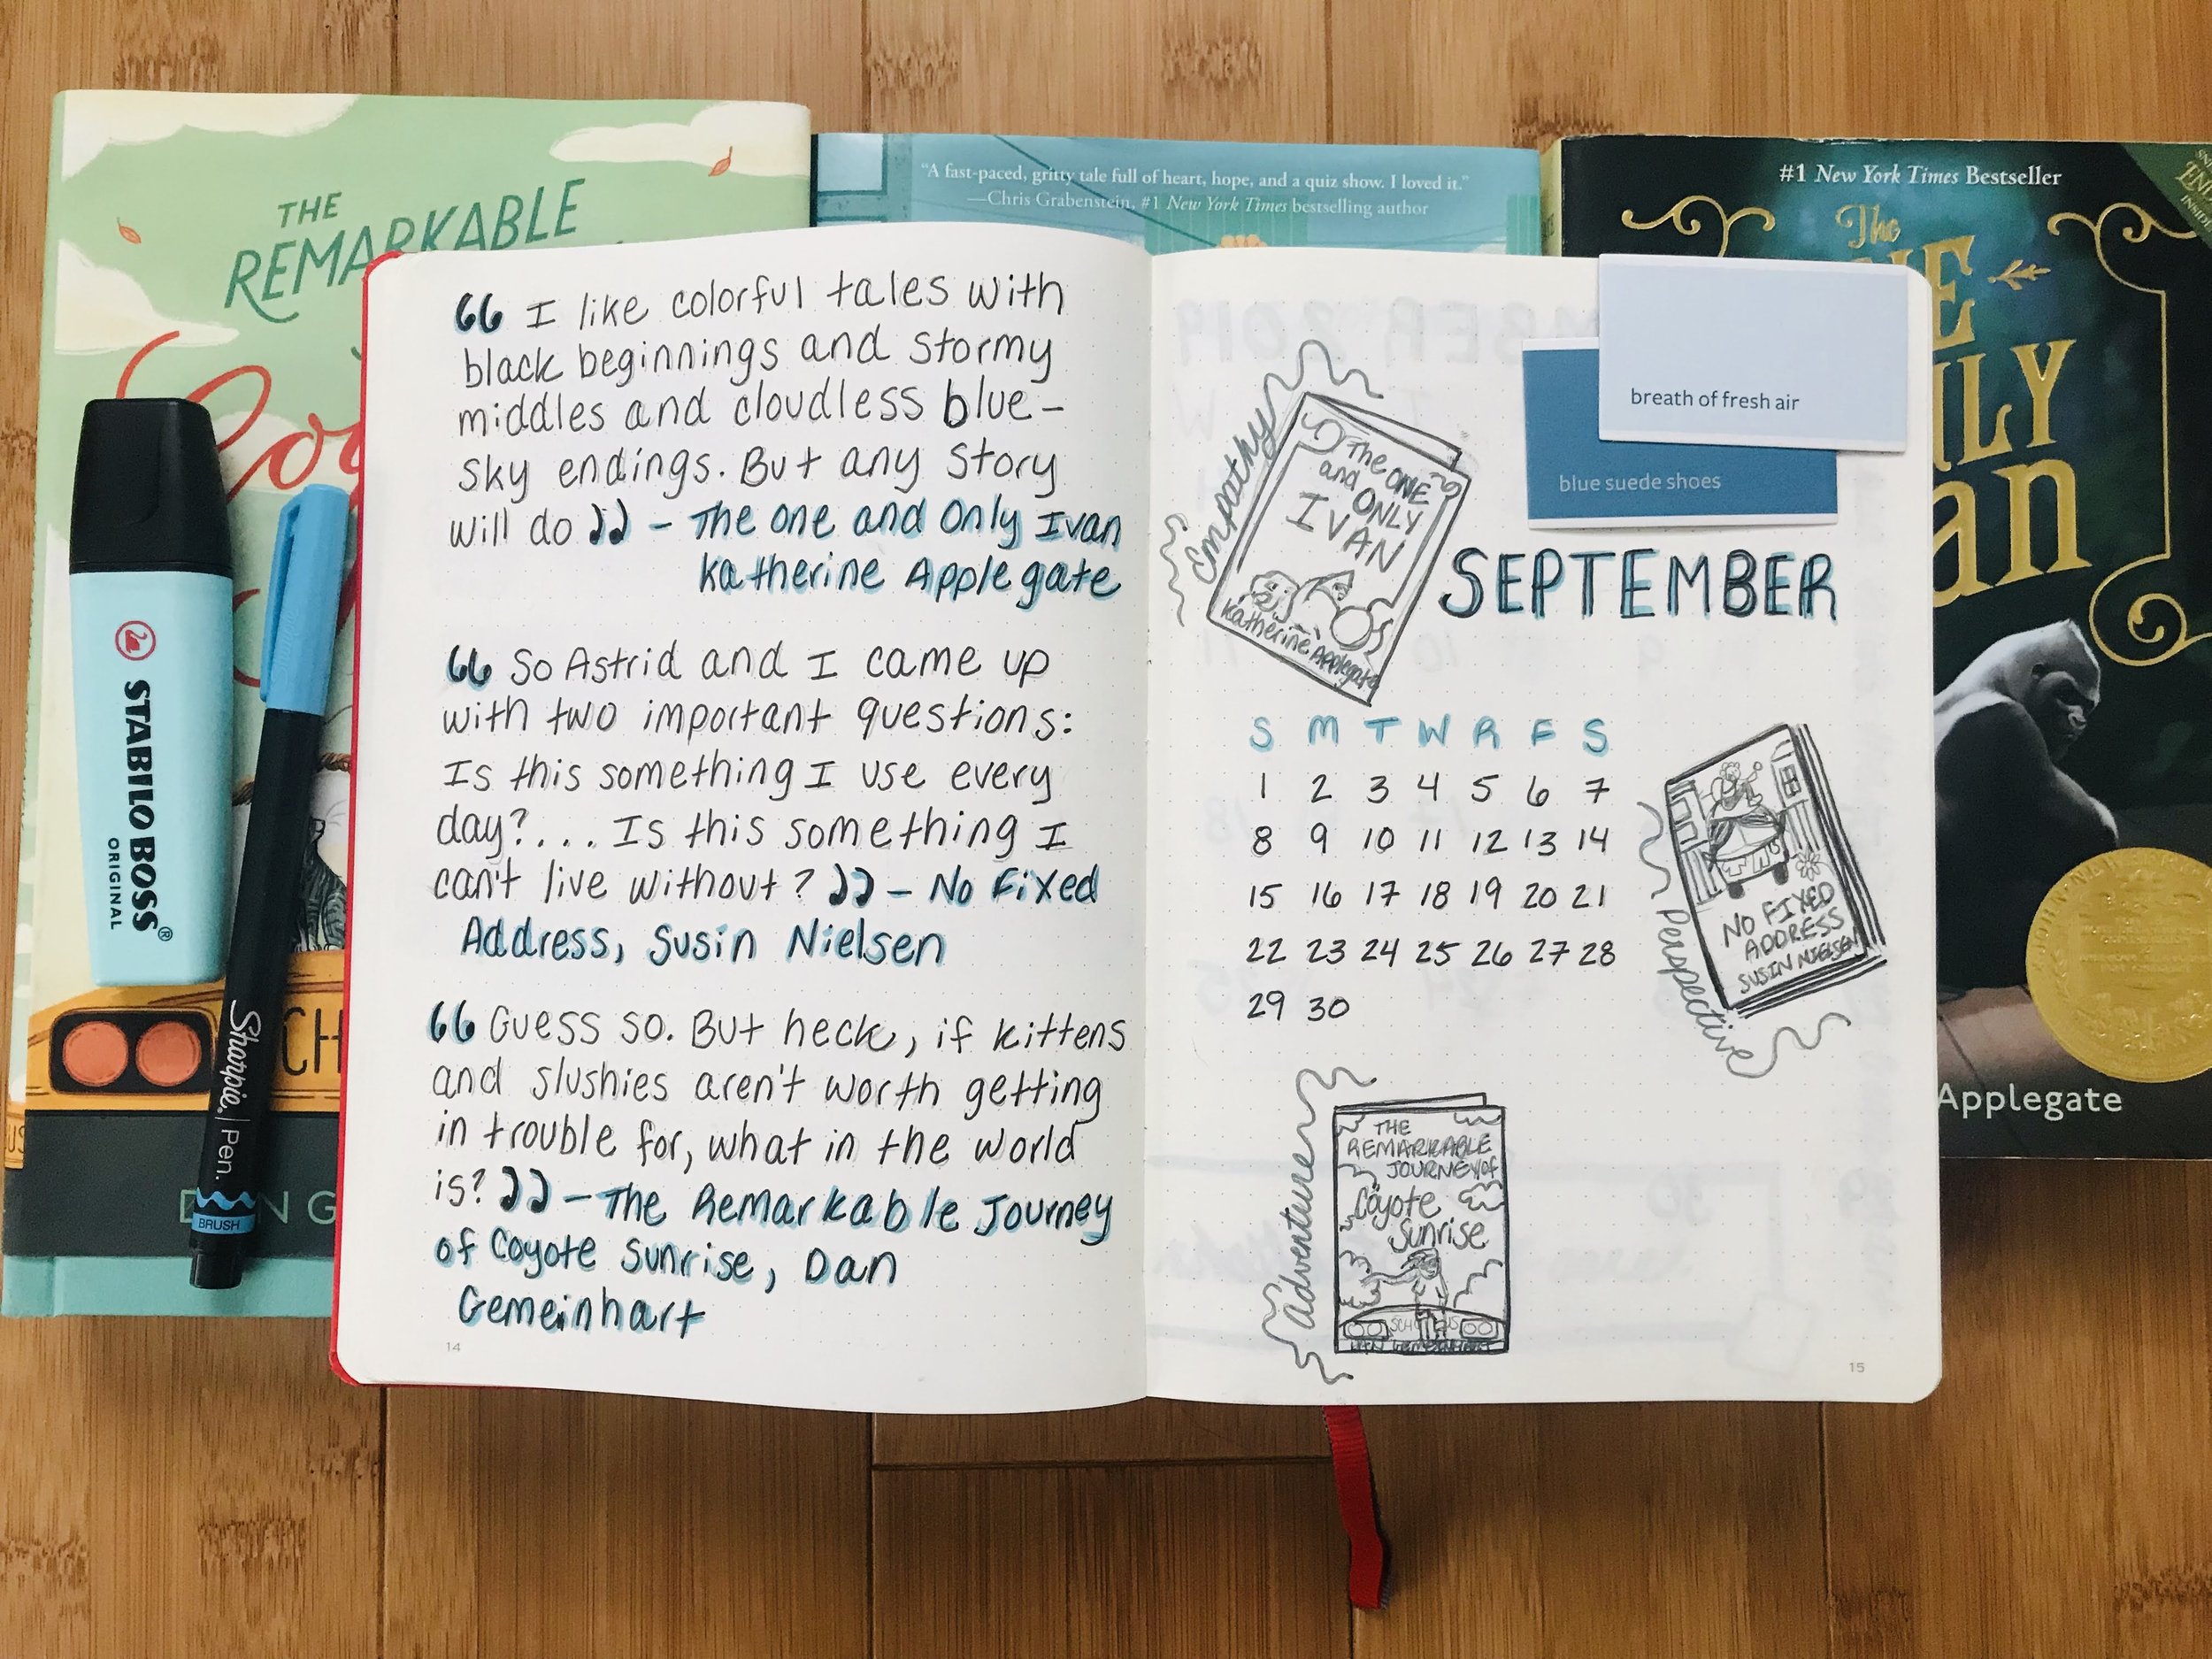 THE
REMARKABLE
"A fast-paced, gritty tale full of heart, hope, and a quiz show. I loved it."
—Chris Grabenstein, #1 New York Times bestselling author
#1 New York Times Bestseller
The
Applegate
STABILO BOSS®
ORIGINAL
Sharpie. | Pen.
BRUSH
I like colorful tales with
black beginnings and stormy
middles and cloudless blue-
sky endings. But any story
will do - The One and Only Ivan
Katherine Applegate
So Astrid and I came up
with two important questions:
Is this something I use every
day?.... Is this something I
can't live without? - No Fixed
Address, Susin Nielsen
Guess so. But heck, if kittens
and slushies aren't worth getting
in trouble for, what in the world
is? - The Remarkable Journey
of Coyote Sunrise, Dan
Gemeinhart
14
breath of fresh air
blue suede shoes
Empathy
The ONE
and ONLY
IVAN
Katherine Applegate
SEPTEMBER
S M T W R F S
1 2 3 4 5 6 7
8 9 10 11 12 13 14
15 16 17 18 19 20 21
22 23 24 25 26 27 28
29 30
Perspective
NO FIXED
ADDRESS
SUSIN NIELSEN
Adventure
THE
REMARKABLE
JOURNEY of
Coyote
Sunrise
15